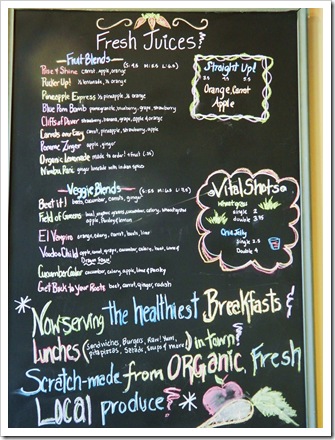 Fresh Juices!
Fruit Blends
Rise & Shine carrot, apple, orange
Pucker Up! ½ lemonade, ½ orange
Pineapple Express ½ pineapple, ½ orange
Blue Pom Bomb pomegranate, blueberry, grape, strawberry
Cliffs of Dover strawberry, banana, grape, apple, orange
Carrots are Easy carrot, pineapple, strawberry, apple
Ponome Zinger apple, ginger
Organic Lemonade made to order!
Mumbai Pani ginger limelade with indian spices
Straight Up!
Orange, Carrot
Apple
Veggie Blends
Beet it! beets, cucumber, carrots, ginger
Field of Greens
apple, Parsley & lemon
El Vampiro orange, celery, carrot, beets, lime
Voodoo Child
Cucumber Cooler cucumber, celery, apple, lime & Parsley
Get Back to Your Roots beet, carrot, ginger, radish
Vital Shots
Wheatgrass
single 2
double 3.75
single 2
Double 4
Now serving the healthiest Breakfasts &
Lunches (Sandwiches, Burgers, Raw! Yum!, in town!
pita pizzas, Salads, Soups & more!)
Scratch-made from ORGANIC, Fresh
Local produce!